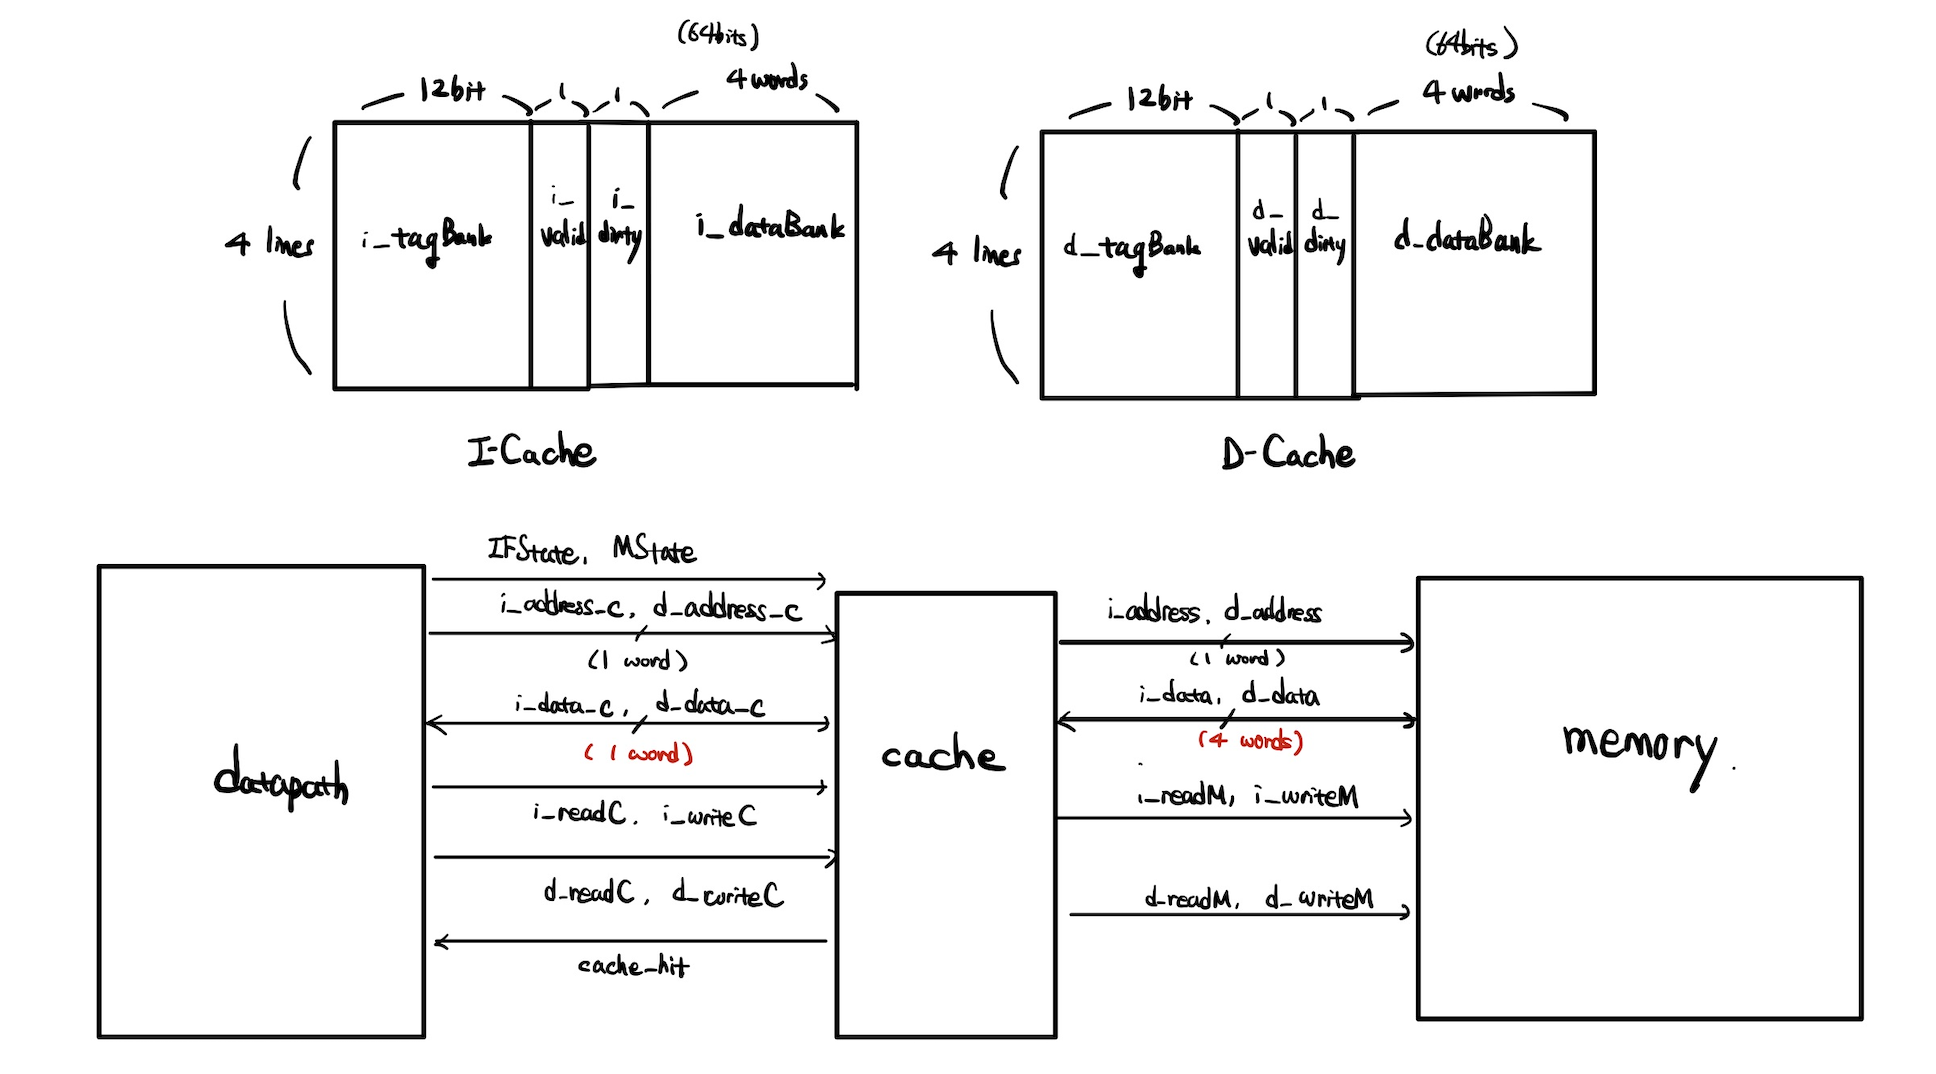 (64bits)
12bit 1 1 4 words
4 lines
i_tagBank
i_
valid
i_
dirty
i_dataBank
I-Cache
(64bits)
12bit 1 1 4 words
4 lines
d_tagBank
d_
valid
d_
dirty
d_dataBank
D-Cache
datapath
IFState, MState
i_address_c, d_address_c
(1 word)
i_data_c, d_data_c
(1 word)
i_readC, i_writeC
d_readC, d_writeC
cache_hit
cache
i_address, d_address
(1 word)
i_data, d_data
(4 words)
i_readM, i_writeM
d_readM, d_writeM
memory